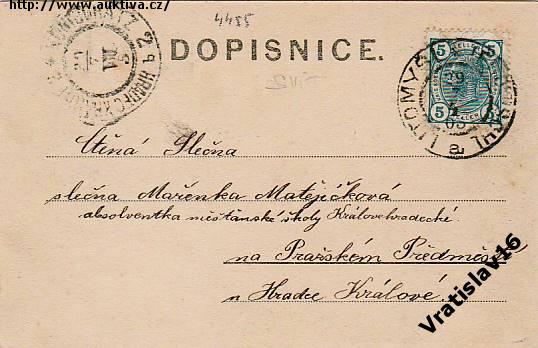 http://www.auktiva.cz
4485
DOPISNICE.
5 5
5 5
LITOMYŠL
a
Ctěná Slečna
slečna Mařenka Matějíčková
absolventka měšťanské školy Královehradecké
na Pražském Předměstí
u Hradce Králové.
Vratislav16